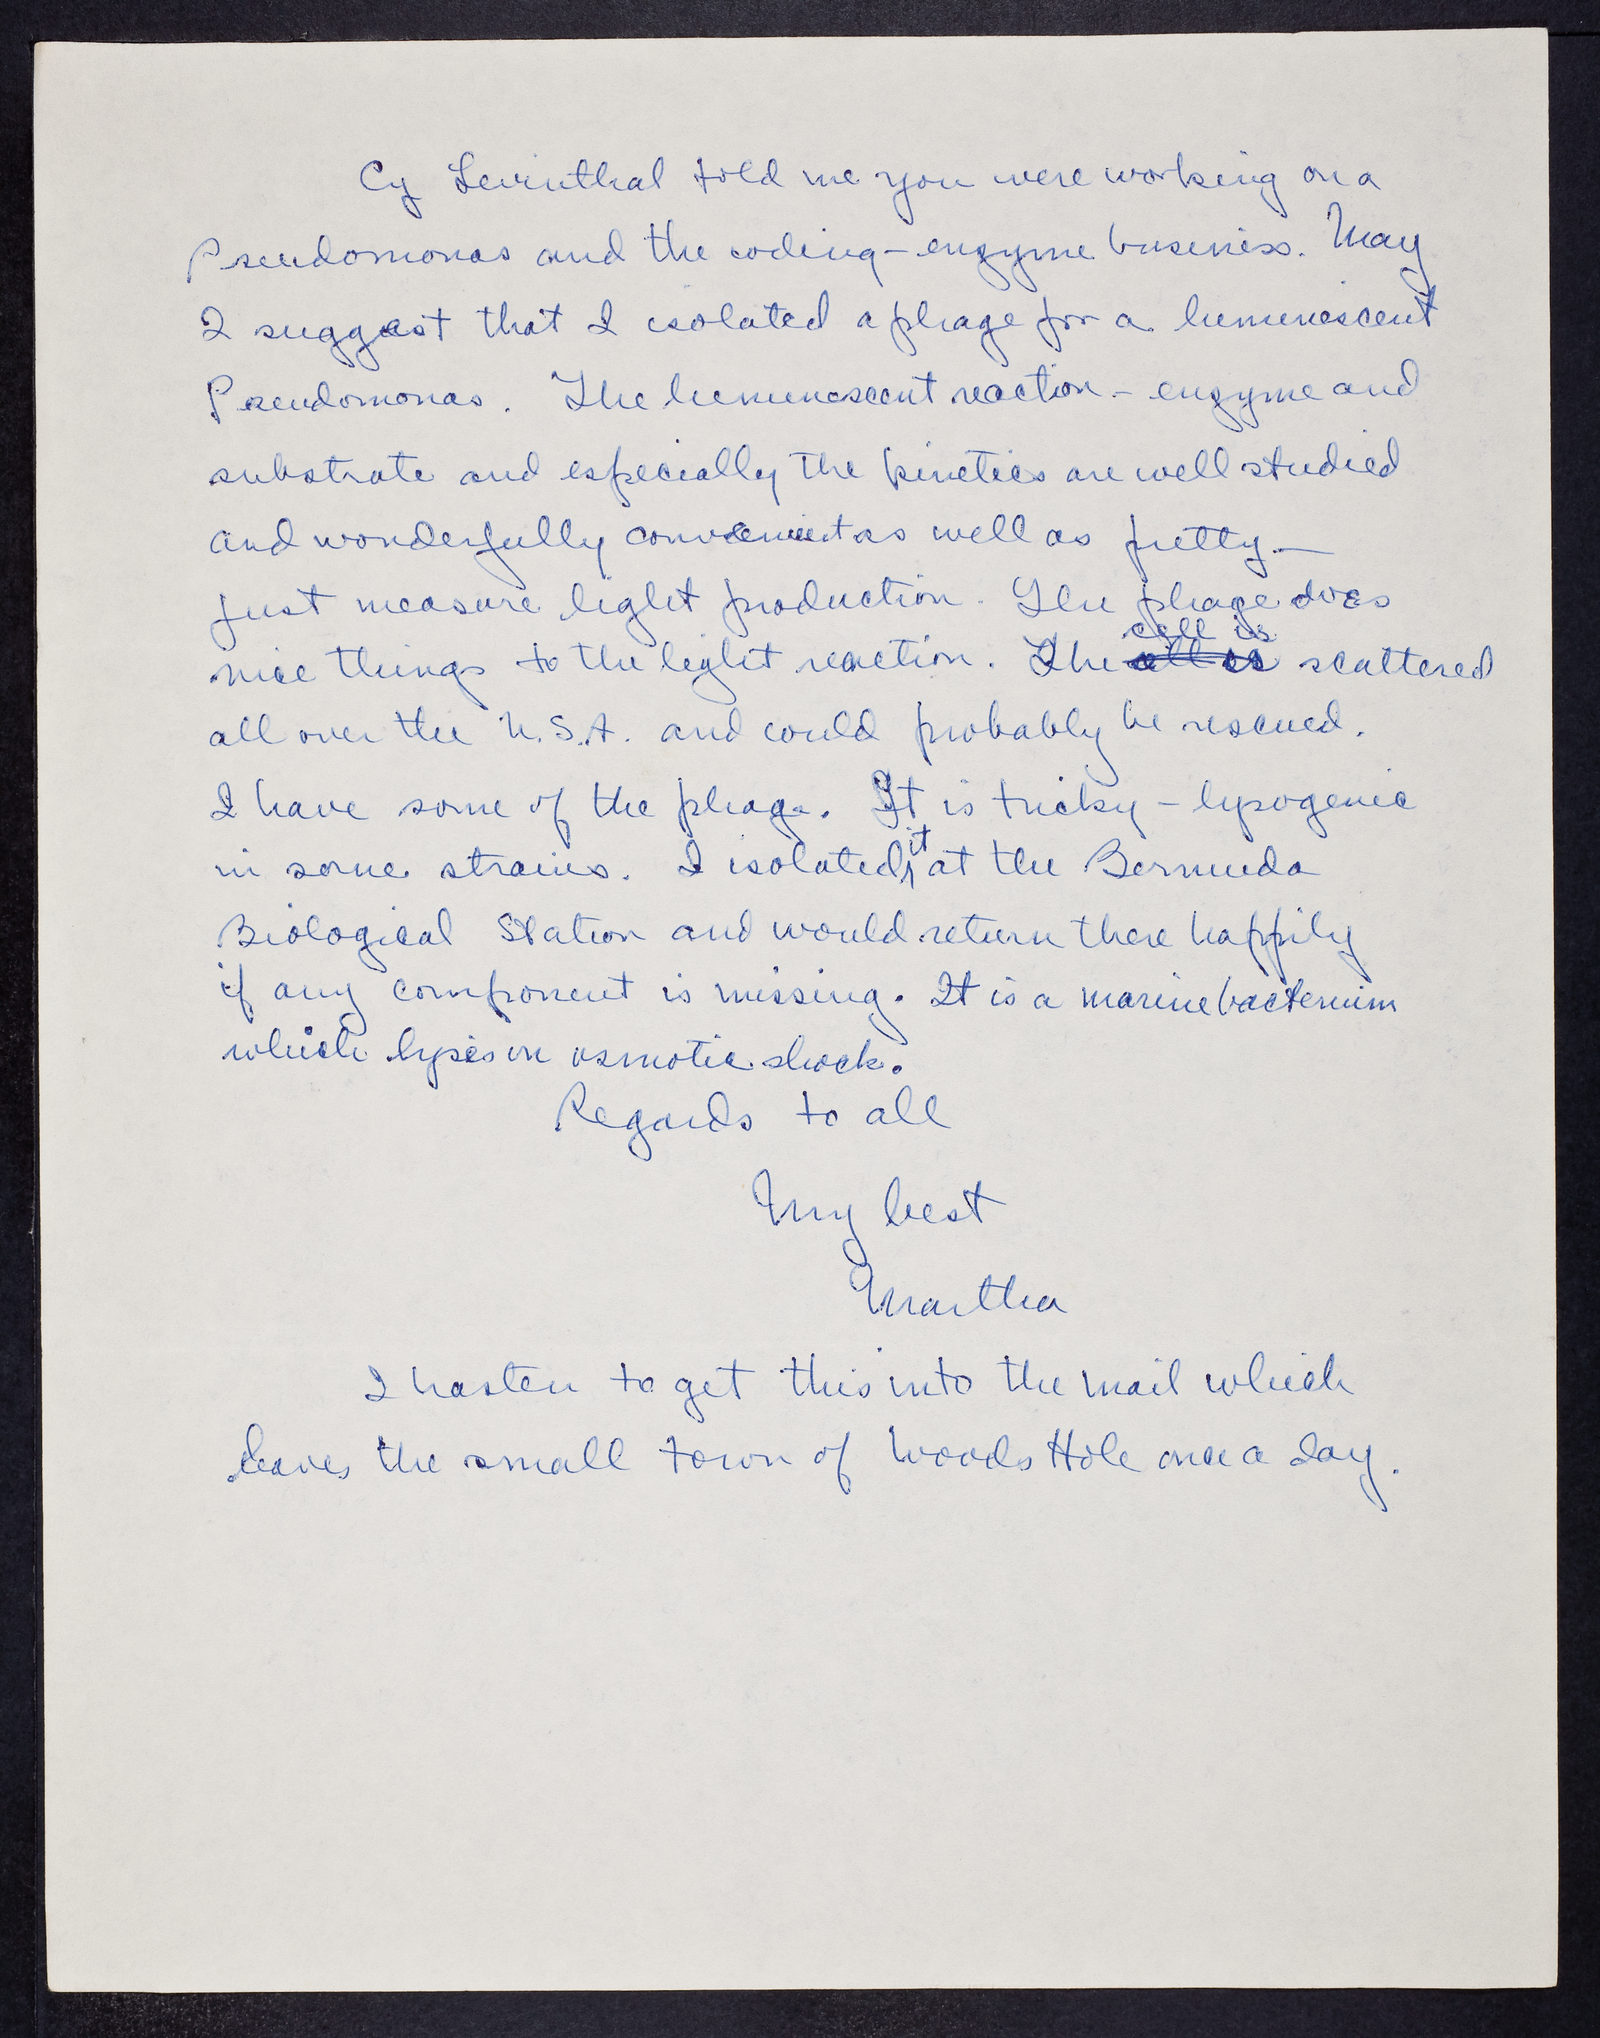 Cy Levinthal told me you were working on a
Pseudomonas and the coding-enzyme business. May
I suggest that I isolated a phage for a luminescent
Pseudomonas. The luminescent reaction - enzyme and
substrate and especially the kinetics are well studied
and wonderfully convenient as well as pretty —
just measure light production. The phage does
cell is
nice things to the light reaction. The cell is scattered
all over the U.S.A. and could probably be rescued.
I have some of the phage. It is tricky - lysogenic
in some strains. I isolated it at the Bermuda
Biological Station and would return there happily
if any component is missing. It is a marine bacterium
which lyses on osmotic shock.
Regards to all
My best
Martha
I hasten to get this into the mail which
leaves the small town of Woods Hole once a day.